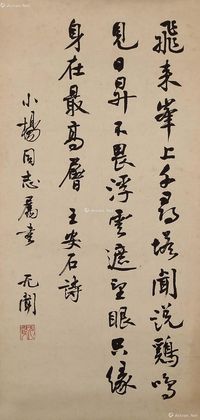 飛来峯上千尋塔聞説鷄鳴
見日昇不畏浮雲遮望眼只緣
身在最高層 王安石詩
小楊同志属書 无闻